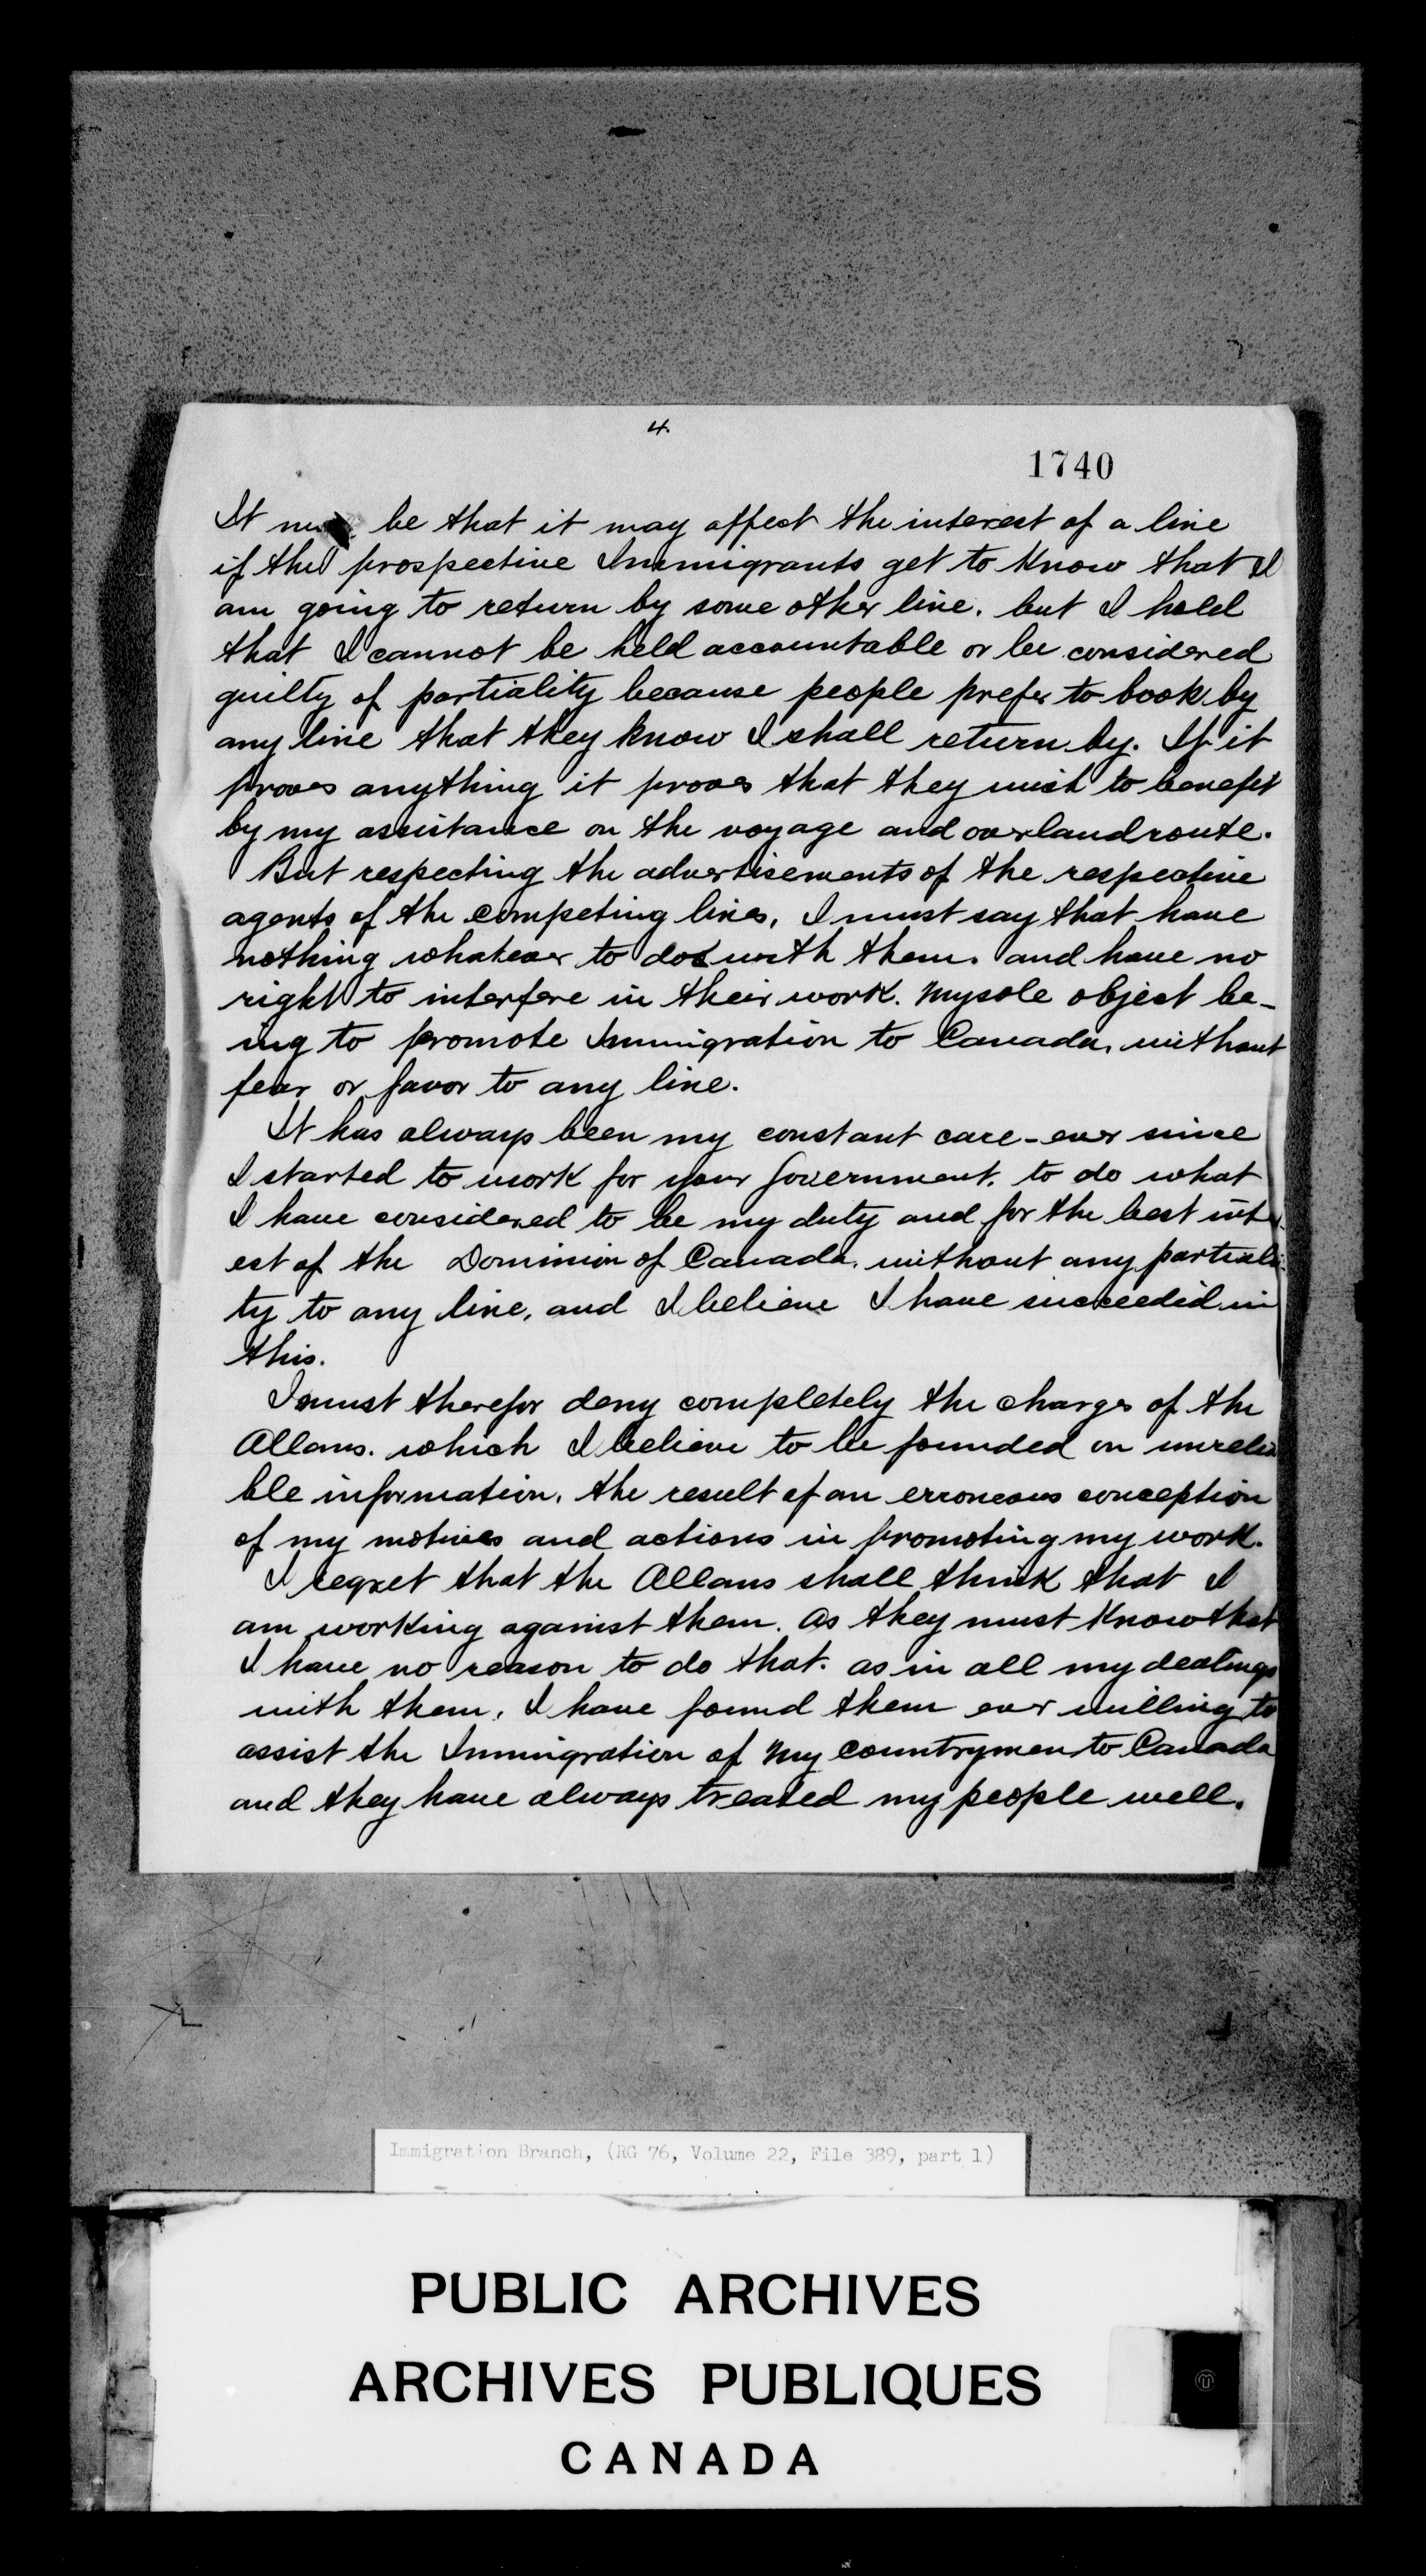 4.
1740
It be that it may affect the interest of a line
if the prospective Immigrants get to know that I
am going to return by some other line. but I hold
that I cannot be held accountable or be considered
guilty of partiality because people prefer to book by
any line that they know I shall return by. If it
proves anything it proves that they wish to benefit
by my assistance on the voyage and overland route.
But respecting the advertisements of the respective
agents of the competing lines, I must say that have
nothing whatever to do with them. and have no
right to interfere in their work. My sole object be-
ing to promote Immigration to Canada, without
fear or favor to any line.
It has always been my constant care - ever since
I started to work for your Government, to do what
I have considered to be my duty and for the best inter-
est of the Dominion of Canada, without any partiali-
ty to any line, and I believe I have succeeded in
this.
I must therefor deny completely the charges of the
Allans. which I believe to be founded on unrelia
ble information, the result of an erroneous conception
of my motives and actions in promoting my work.
I regret that the Allans shall think that I
am working against them. As they must know that
I have no reason to do that. as in all my dealings
with them, I have found them ever willing to
assist the Immigration of my countrymen to Canada
and they have always treated my people well.
Immigration Branch, (RG 76, Volume 22, File 389, part 1)
PUBLIC ARCHIVES
ARCHIVES PUBLIQUES
CANADA